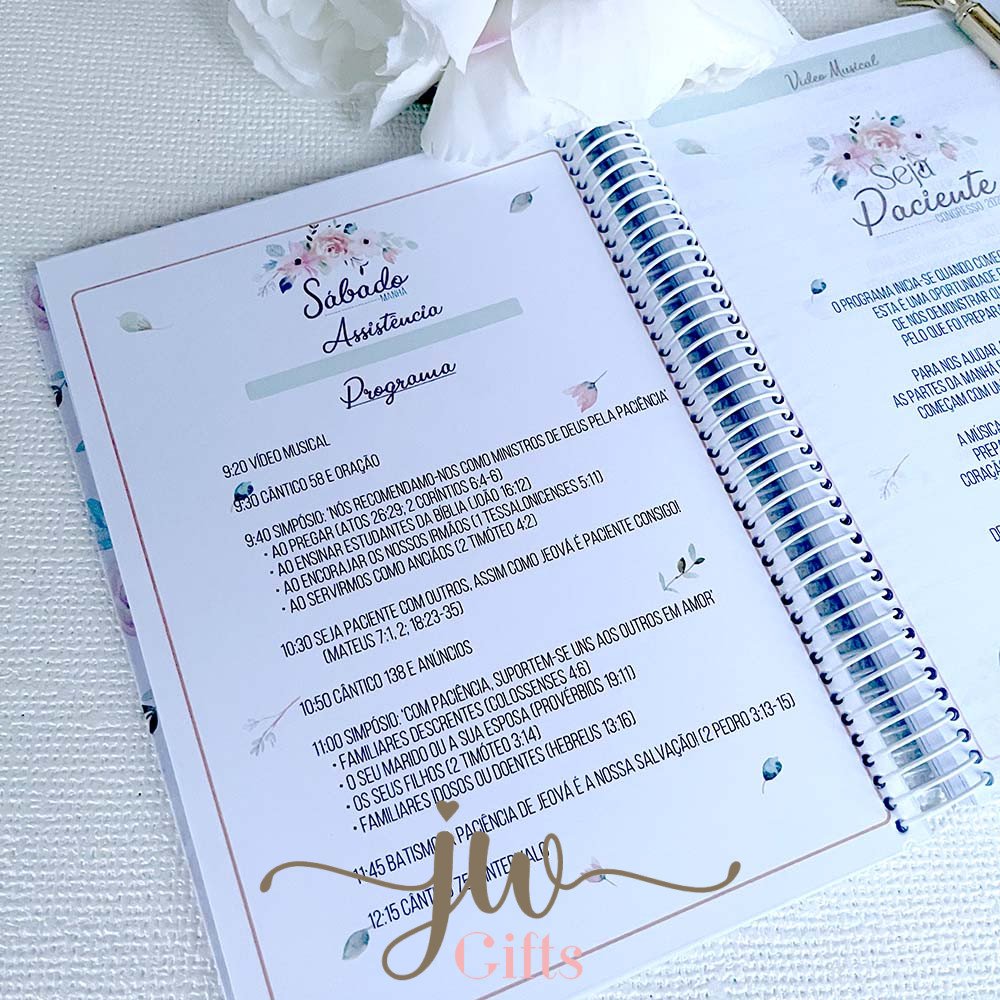 Sábado
MANHÃ
Assistência
Programa
9:20 VÍDEO MUSICAL
9:30 CÂNTICO 58 E ORAÇÃO
9:40 SIMPÓSIO: 'NÓS RECOMENDAMO-NOS COMO MINISTROS DE DEUS PELA PACIÊNCIA'
• AO PREGAR (ATOS 26:29; 2 CORÍNTIOS 6:4-6)
• AO ENSINAR ESTUDANTES DA BÍBLIA (JOÃO 16:12)
• AO ENCORAJAR OS NOSSOS IRMÃOS (1 TESSALONICENSES 5:11)
• AO SERVIRMOS COMO ANCIÃOS (2 TIMÓTEO 4:2)
10:30 SEJA PACIENTE COM OUTROS, ASSIM COMO JEOVÁ É PACIENTE CONSIGO!
(MATEUS 7:1, 2; 18:23-35)
10:50 CÂNTICO 138 E ANÚNCIOS
11:00 SIMPÓSIO: 'COM PACIÊNCIA, SUPORTEM-SE UNS AOS OUTROS EM AMOR'
• FAMILIARES DESCRENTES (COLOSSENSES 4:6)
• O SEU MARIDO OU A SUA ESPOSA (PROVÉRBIOS 19:11)
• OS SEUS FILHOS (2 TIMÓTEO 3:14)
• FAMILIARES IDOSOS OU DOENTES (HEBREUS 13:16)
11:45 BATISMO: A PACIÊNCIA DE JEOVÁ É A NOSSA SALVAÇÃO! (2 PEDRO 3:13-15)
12:15 CÂNTICO 75 INTERVALO
Vídeo Musical
Seja
Paciente
CONGRESSO
O PROGRAMA INICIA-SE QUANDO
ESTA É UMA OPORTUNIDADE
DE NÓS DEMONSTRAR
PELO QUE FOI
PARA NOS AJUDAR
AS PARTES DA MANHÃ
COMEÇAM COM
A MÚSICA
jw
Gifts